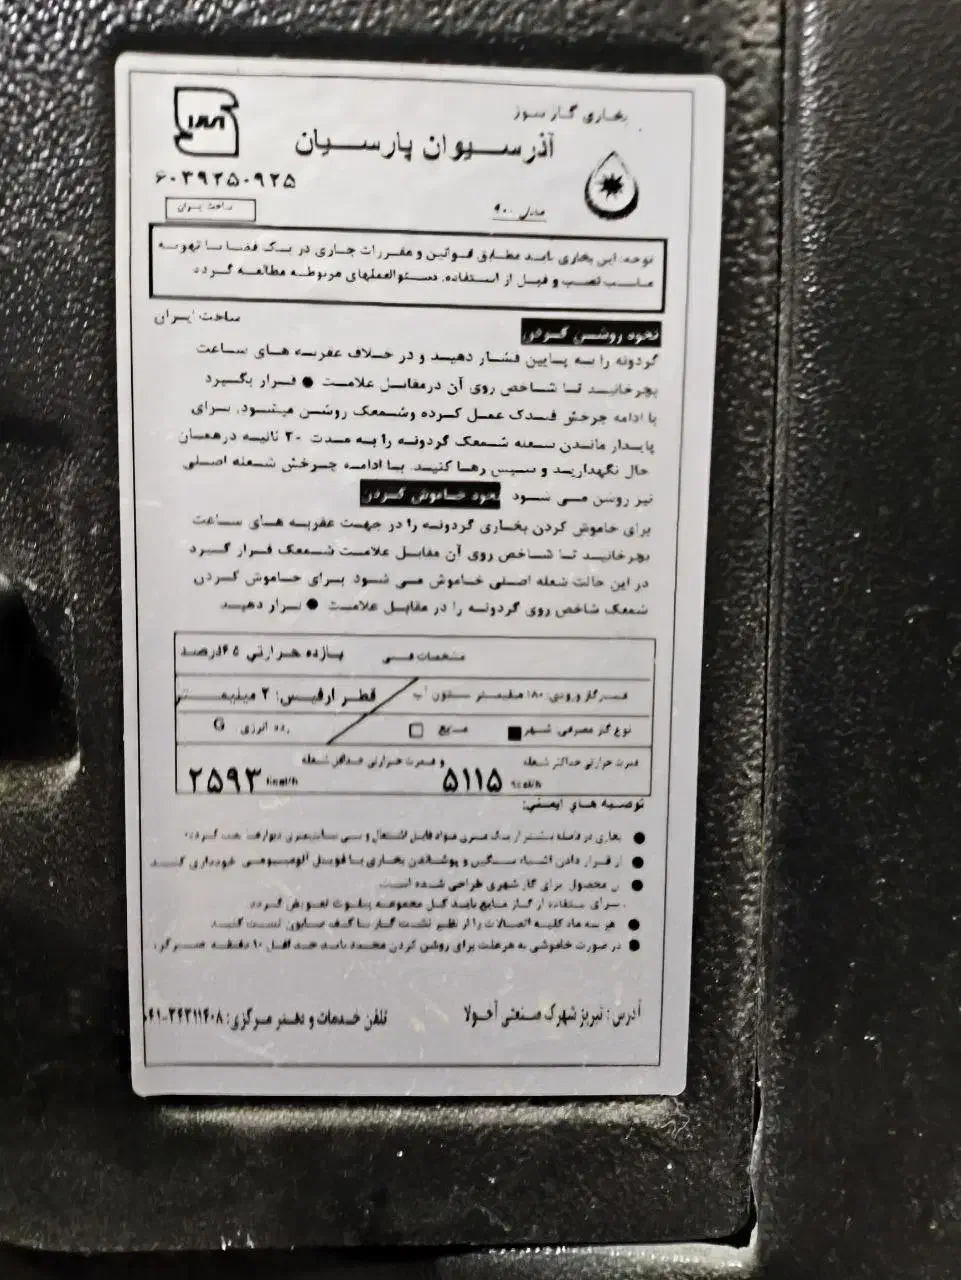 بخاری گاز سوز
آذرسیوان پارسیان
۶۰۳۹۲۵۰۹۲۵
ساخت ایران
مدل ۹۰۰
توجه: این بخاری باید مطابق قوانین و مقررات جاری در یک فضا با تهویه
مناسب نصب و قبل از استفاده، دستورالعملهای مربوطه مطالعه گردد
ساخت ایران
نحوه روشن کردن
گردونه را به پایین فشار دهید و در خلاف عقربه های ساعت
بچرخانید تا شاخص روی آن درمقابل علامت ● قرار بگیرد
با ادامه چرخش فندک عمل کرده وشمعک روشن میشود، برای
پایدار ماندن شعله شمعک گردونه را به مدت ۲۰ ثانیه درهمان
حال نگهدارید و سپس رها کنید. با ادامه چرخش شعله اصلی
نیز روشن می شود نحوه خاموش کردن
برای خاموش کردن بخاری گردونه را در جهت عقربه های ساعت
بچرخانید تا شاخص روی آن مقابل علامت شمعک قرار گیرد
در این حالت شعله اصلی خاموش می شود برای خاموش کردن
شمعک شاخص روی گردونه را در مقابل علامت ● قرار دهید
مشخصات فنی بازده حرارتی درصد
فشار گاز ورودی: ۱۸۰ میلیمتر ستون آب قطر ارفیس: ۲ میلیمتر
نوع گاز مصرفی شهری ■ مایع □ رده انرژی G
قدرت حرارتی حداکثر شعله ۵۱۱۵ kcal/h و قدرت حرارتی حداقل شعله ۲۵۹۳ kcal/h
توصیه های ایمنی:
● بخاری در فاصله بیشتر از یک متری مواد قابل اشتعال و سی سانتیمتری دیوارها نصب گردد
● از قرار دادن اشیاء سنگین و پوشاندن بخاری با فویل آلومینیومی خودداری کنید
● این محصول برای گاز شهری طراحی شده است
برای استفاده از گاز مایع باید کل مجموعه پیلوت تعویض گردد
● هر سه ماه کلیه اتصالات را از نظر نشت گاز با کف صابون تست کنید
● در صورت خاموشی به هرعلت برای روشن کردن مجدد باید حداقل ۱۰ دقیقه صبرکرد
آدرس: تبریز شهرک صنعتی آخولا تلفن خدمات و دفتر مرکزی: ۰۴۱-۳۴۳۱۱۴۰۸